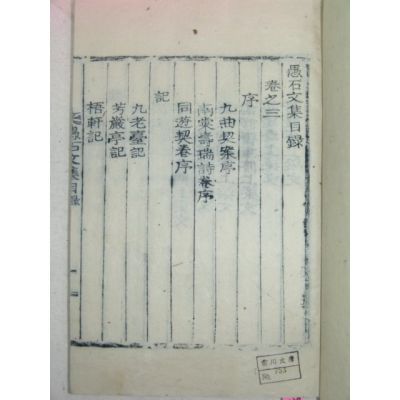 愚石文集目錄
卷之三
序
九曲契案序
南棠壽瑞詩卷序
同遊契卷序
記
九老臺記
芳巖亭記
梧軒記
愚石文集目錄
753